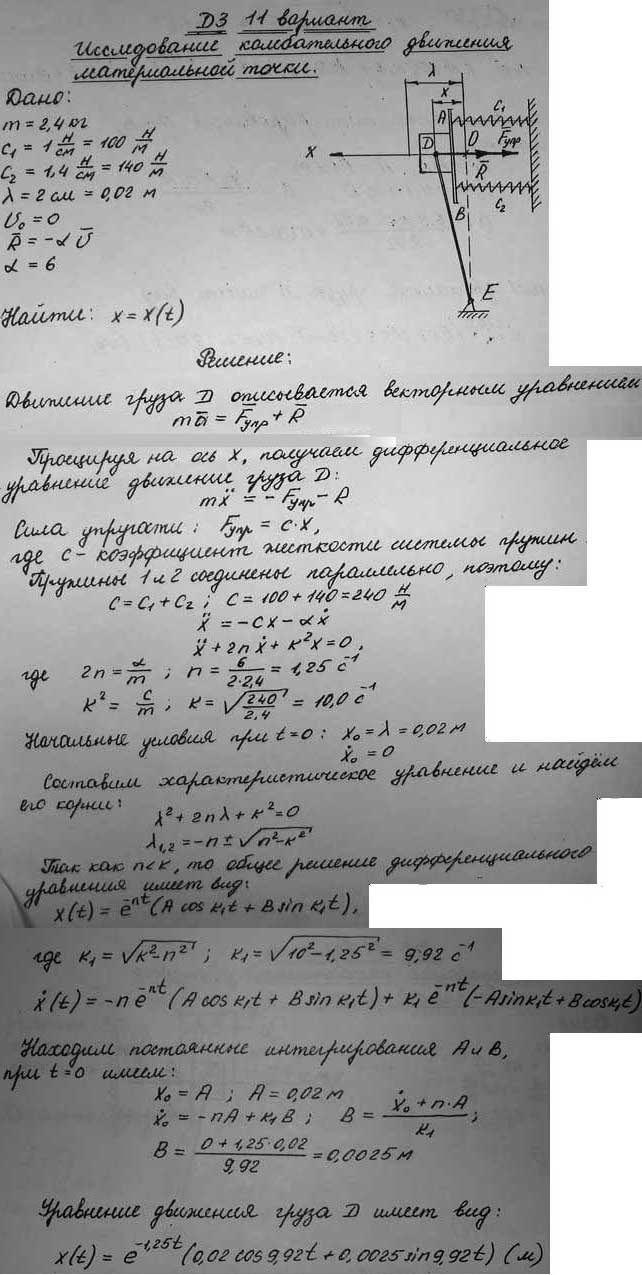 Д3 11 вариант
Исследование колебательного движения
материальной точки.
Дано:
m = 2,4 кг
c₁ = 1 Н/см = 100 Н/м
c₂ = 1,4 Н/см = 140 Н/м
λ = 2 см = 0,02 м
υ₀ = 0
R̄ = -αῡ
α = 6
Найти: x = x(t)
λ
x
A
c₁
X
D
O
F̄упр
R̄
B
c₂
E
Решение:
Движение груза D описывается векторным уравнением
mā = F̄упр + R̄
Проецируя на ось X, получаем дифференциальное
уравнение движение груза D:
mẍ = - Fупр - R
Сила упругости: Fупр = c·x,
где c - коэффициент жесткости системы пружин.
Пружины 1 и 2 соединены параллельно, поэтому:
c = c₁ + c₂ ; c = 100 + 140 = 240 Н/м
ẍ = -cx - αẋ
ẍ + 2nẋ + k²x = 0,
где 2n = α/m ; n = 6/(2·2,4) = 1,25 c⁻¹
k² = c/m ; k = √(240/2,4) = 10,0 c⁻¹
Начальные условия при t = 0 : x₀ = λ = 0,02 м
ẋ₀ = 0
Составим характеристическое уравнение и найдём
его корни:
λ² + 2nλ + k² = 0
λ₁,₂ = -n ± √(n² - k²)
Так как n < k, то общее решение дифференциального
уравнения имеет вид:
x(t) = e⁻ⁿᵗ(A cos k₁t + B sin k₁t),
где k₁ = √(k² - n²) ; k₁ = √(10² - 1,25²) = 9,92 c⁻¹
ẋ(t) = -n e⁻ⁿᵗ(A cos k₁t + B sin k₁t) + k₁ e⁻ⁿᵗ(-A sin k₁t + B cos k₁t)
Находим постоянные интегрирования A и B,
при t = 0 имеем:
x₀ = A ; A = 0,02 м
ẋ₀ = -nA + k₁B ; B = (ẋ₀ + n·A)/k₁ ;
B = (0 + 1,25·0,02)/9,92 = 0,0025 м
Уравнение движения груза D имеет вид:
x(t) = e⁻¹·²⁵ᵗ(0,02 cos 9,92t + 0,0025 sin 9,92t) (м)